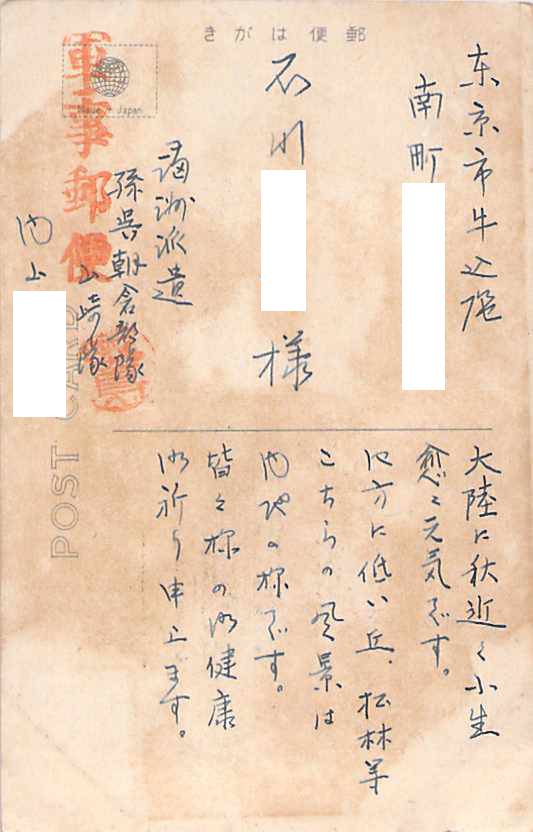 郵便はがき
軍事郵便
Made in Japan
POST CARD
東京市牛込區
南町
石川
様
満洲派遣
孫呉朝倉部隊
山崎隊
内山
大陸に秋近く小生
愈々元気です。
四方に低い丘、松林等
こちらの風景は
内地の様です。
皆々様の御健康
御祈り申上ます。